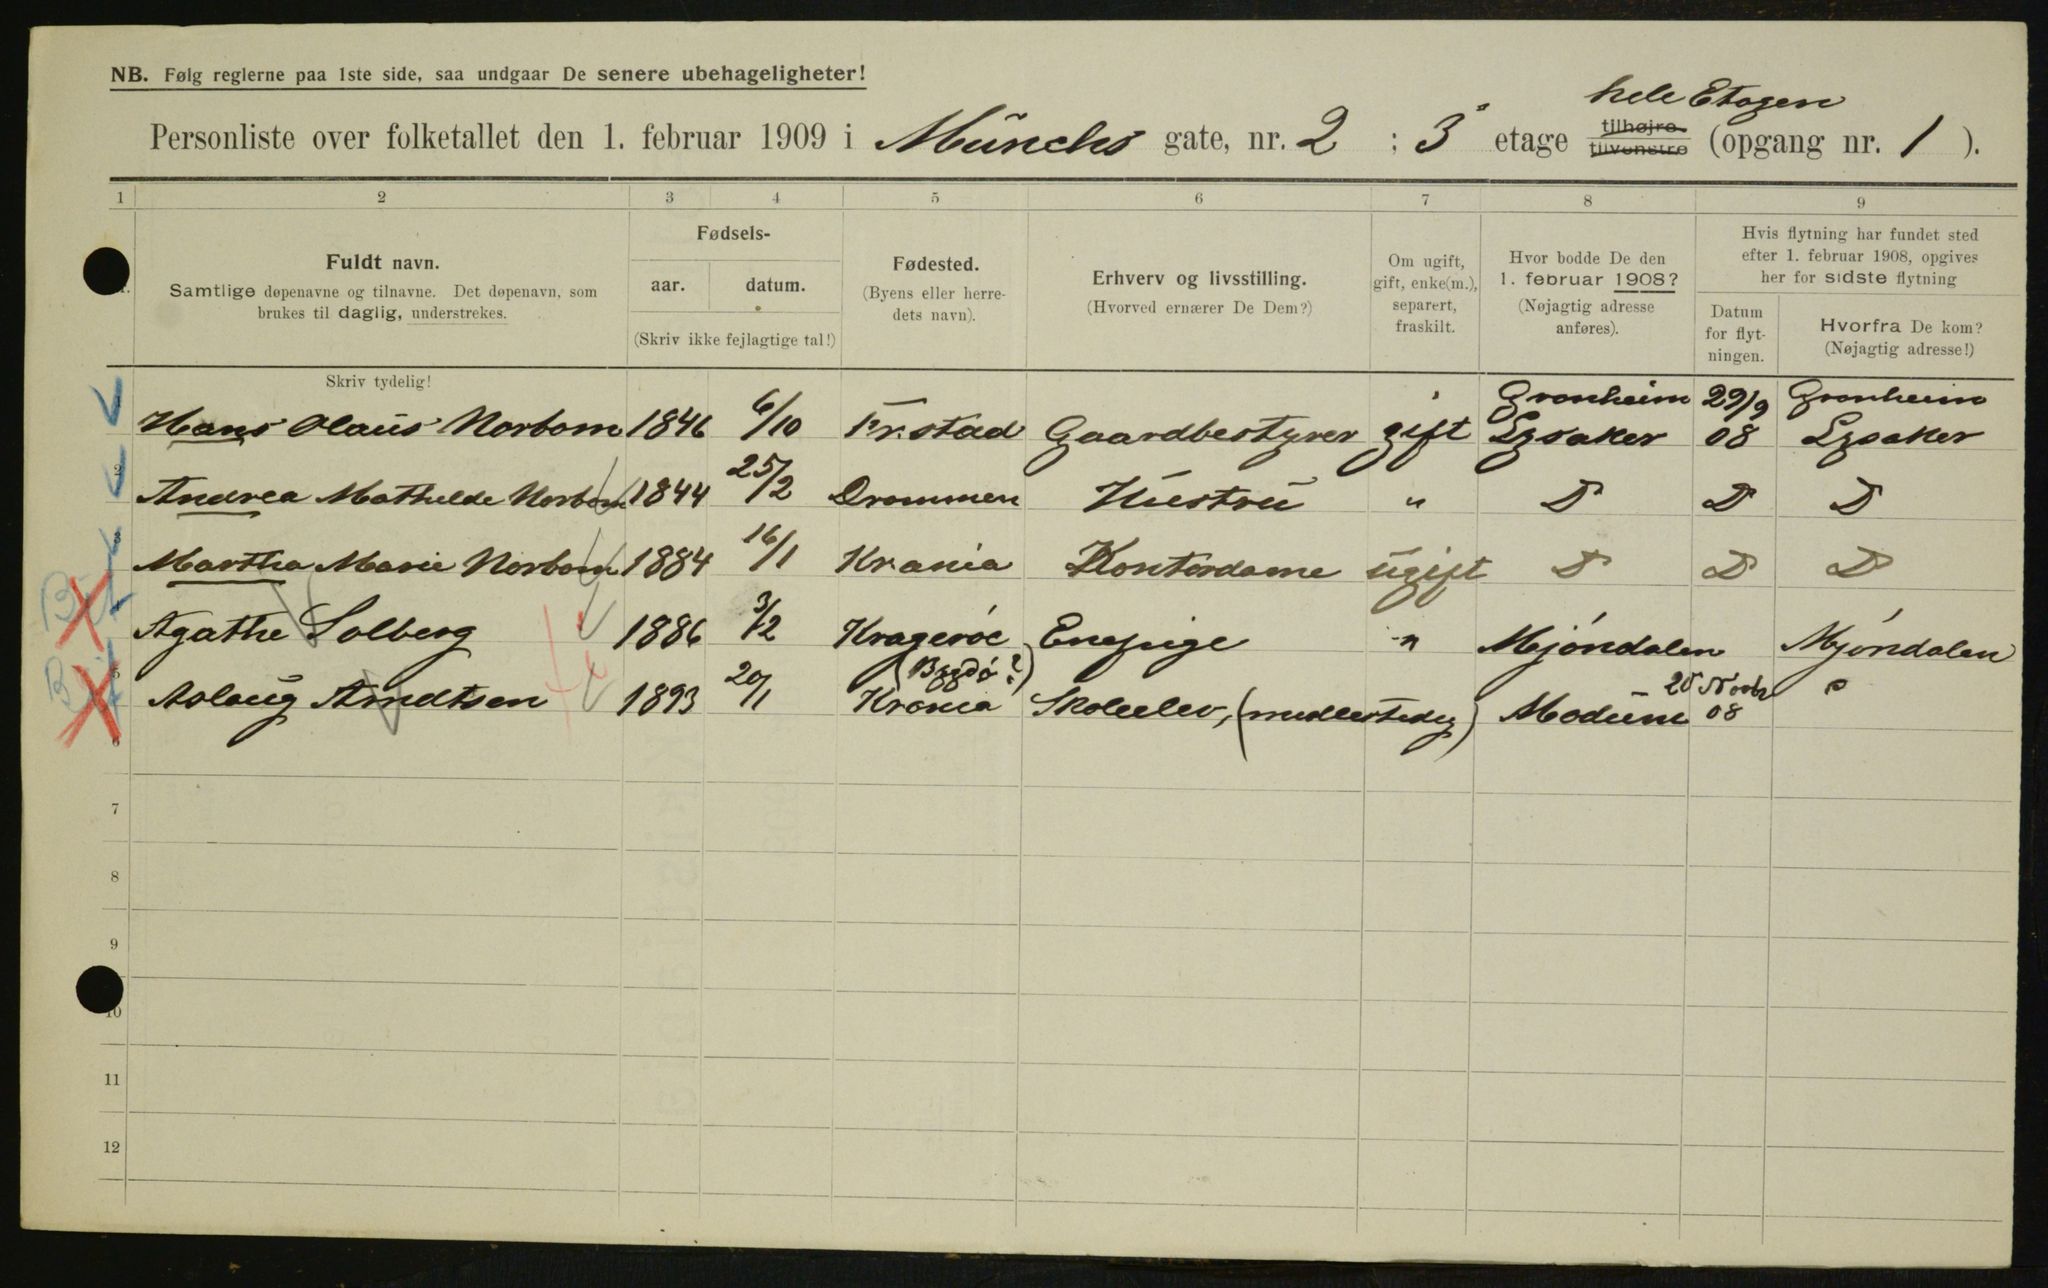 NB. Følg reglerne paa 1ste side, saa undgaar De senere ubehageligheter!
hele Etagen
Personliste over folketallet den 1. februar 1909 i Münchs gate, nr. 2 ; 3 etage tilhøjre tilvenstre (opgang nr. 1 ).
1 2 3 4 5 6 7 8 9
Fuldt navn.
Samtlige døpenavne og tilnavne. Det døpenavn, som
brukes til daglig, understrekes.
Skriv tydelig!
Fødsels-
aar. datum.
(Skriv ikke fejlagtige tal!)
Fødested.
(Byens eller herre-
dets navn).
Erhverv og livsstilling.
(Hvorved ernærer De Dem?)
Om ugift,
gift, enke(m.),
separert,
fraskilt.
Hvor bodde De den
1. februar 1908?
(Nøjagtig adresse
anføres).
Hvis flytning har fundet sted
efter 1. februar 1908, opgives
her for sidste flytning
Datum
for flyt-
ningen.
Hvorfra De kom?
(Nøjagtig adresse!)
Hans Olaus Norbom 1846 6/10 Fr.stad Gaardbestyrer gift Granheim Lysaker 29/9 08 Granheim Lysaker
2 Andrea Mathilde Norbom 1844 25/2 Drammen Hustru " D D D
3 Martha Marie Norbom 1884 16/1 Kr.ania Kontordame ugift D D D
Agathe Solberg 1886 3/2 Kragerøe Enepige " Mjöndalen Mjöndalen
5 Aslaug Arndtsen 1893 20/1 (Bygdö?) Krania Skoleelev, (midlertidig) Modum 20 Novbr 08
6
7
8
9
10
11
12